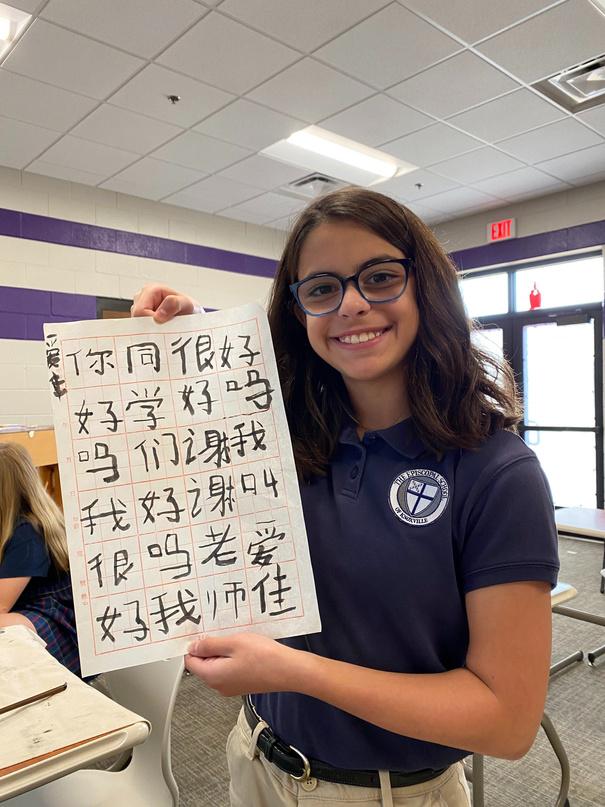 爱佳
你好吗我很好
同学们好吗我
很好谢谢老师
好吗我叫爱佳
THE EPISCOPAL SCHOOL
OF KNOXVILLE
EXIT